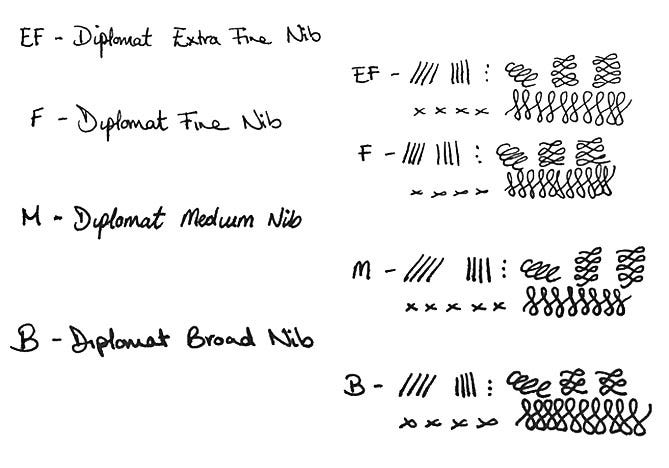 EF - Diplomat Extra Fine Nib
EF -
F - Diplomat Fine Nib
F -
M - Diplomat Medium Nib
M -
B - Diplomat Broad Nib
B -